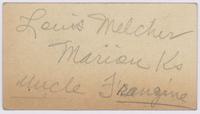 Louis Melcher
Marion Ks
Uncle Frangine